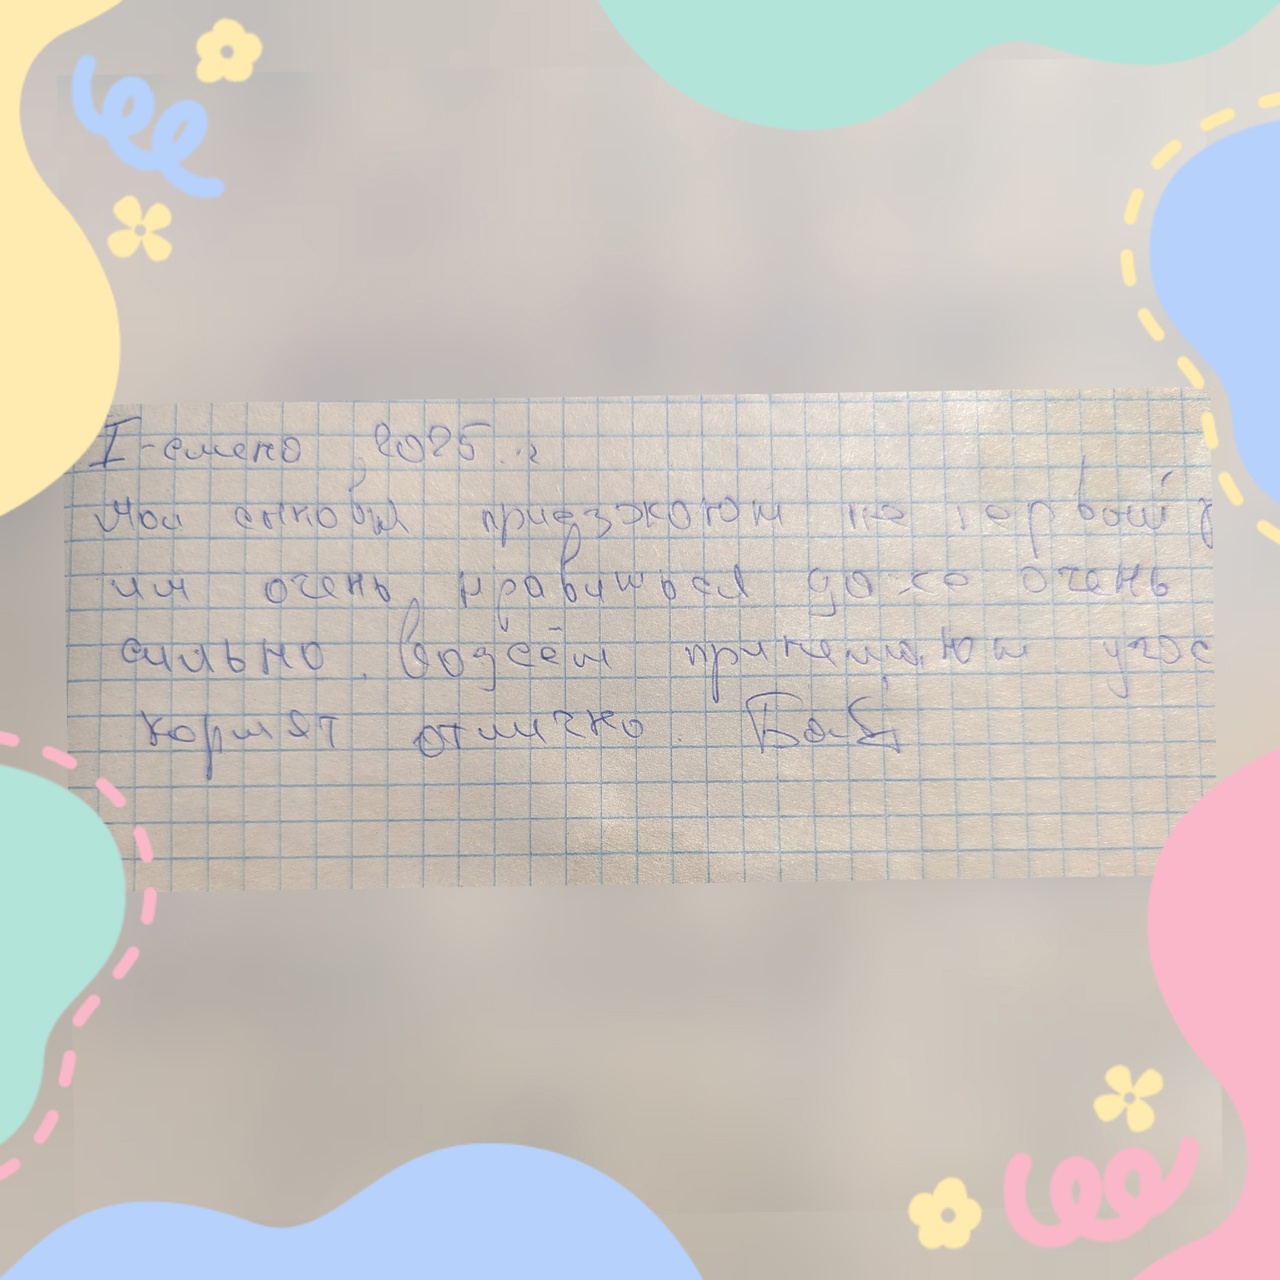 I-смена 2025 г
Мои сыновья приезжают не первый
им очень нравиться даже очень
сильно. Во всём принемают учас
кормят отлично.